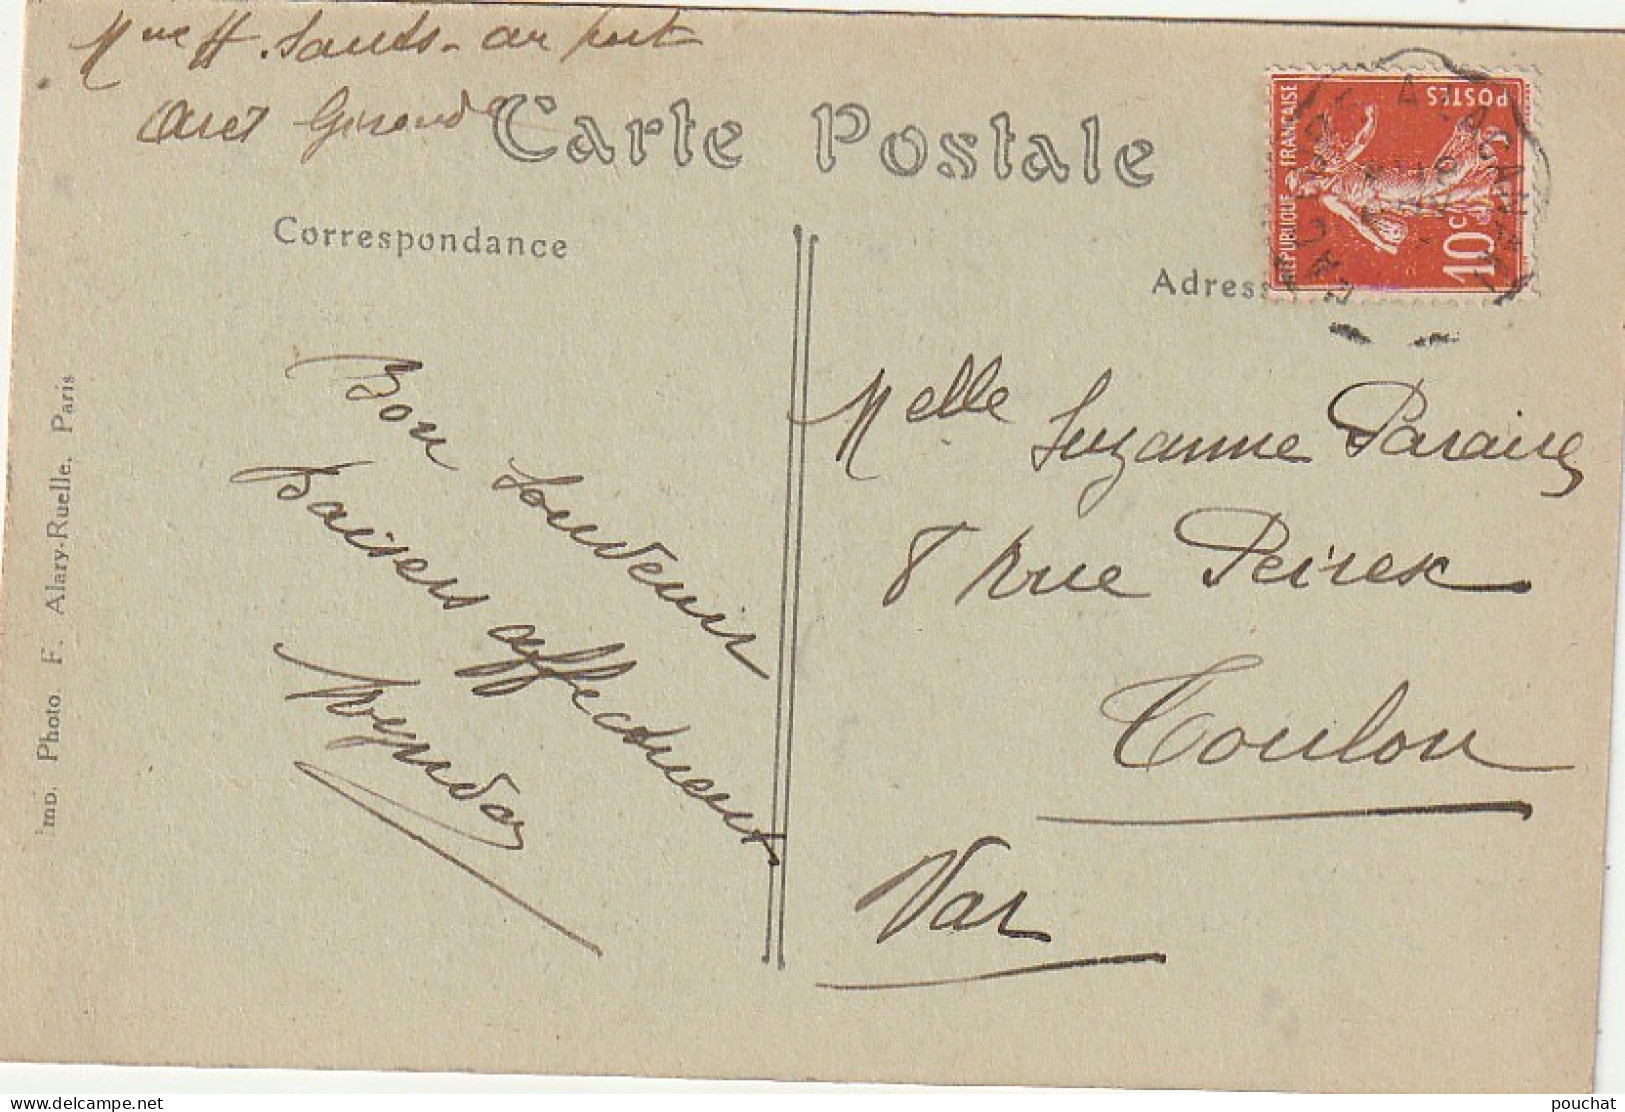 Mme H. Sauds - au port
Ares Gironde
Carte Postale
Correspondance
Adress
RÉPUBLIQUE FRANÇAISE
POSTES
10c
Imp. Photo F. Alary-Ruelle, Paris
Bon Souvenir
Baisers affectueux
Melle Suzanne Paraire
8 Rue Peiresc
Toulon
Var
delcampe.net
pouchat